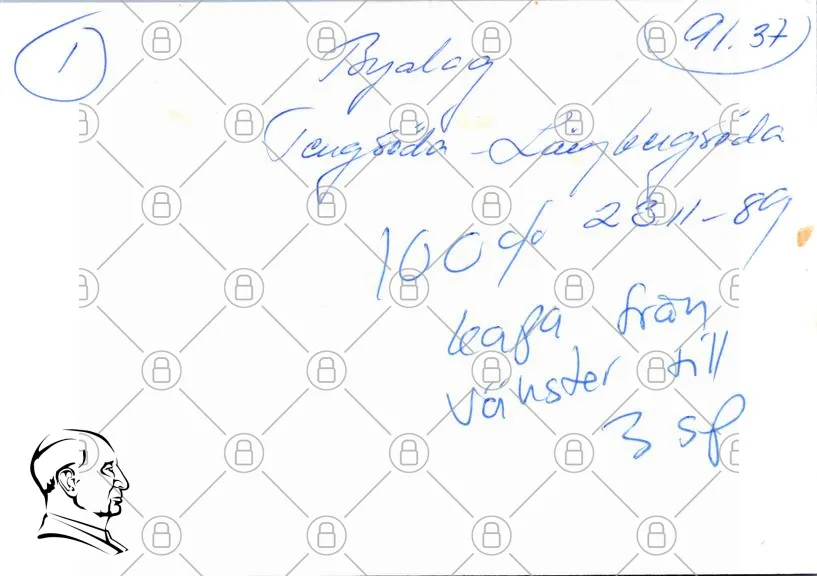 1
91.37
Byalag
Tengsöda - Långbergsöda
23 11-89
100%
kapa från
vänster till
3 sp